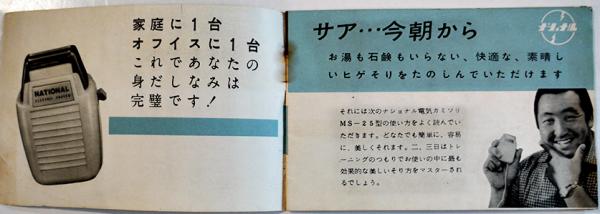 家庭に1台
オフイスに1台
これであなたの
身だしなみは
完璧です!
NATIONAL
サア…今朝から
ナショナル
お湯も石鹸もいらない、快適な、素晴し
いヒゲそりをたのしんでいただけます
それには次のナショナル電気カミソリ
MS-25型の使い方をよく読んでい
ただきます。どなたでも簡単に、容易
に、美しくそれます。二、三日はトレ
ーニングのつもりでお使いの中に最も
効果的な美しいそり方をマスターされ
るでしょう。